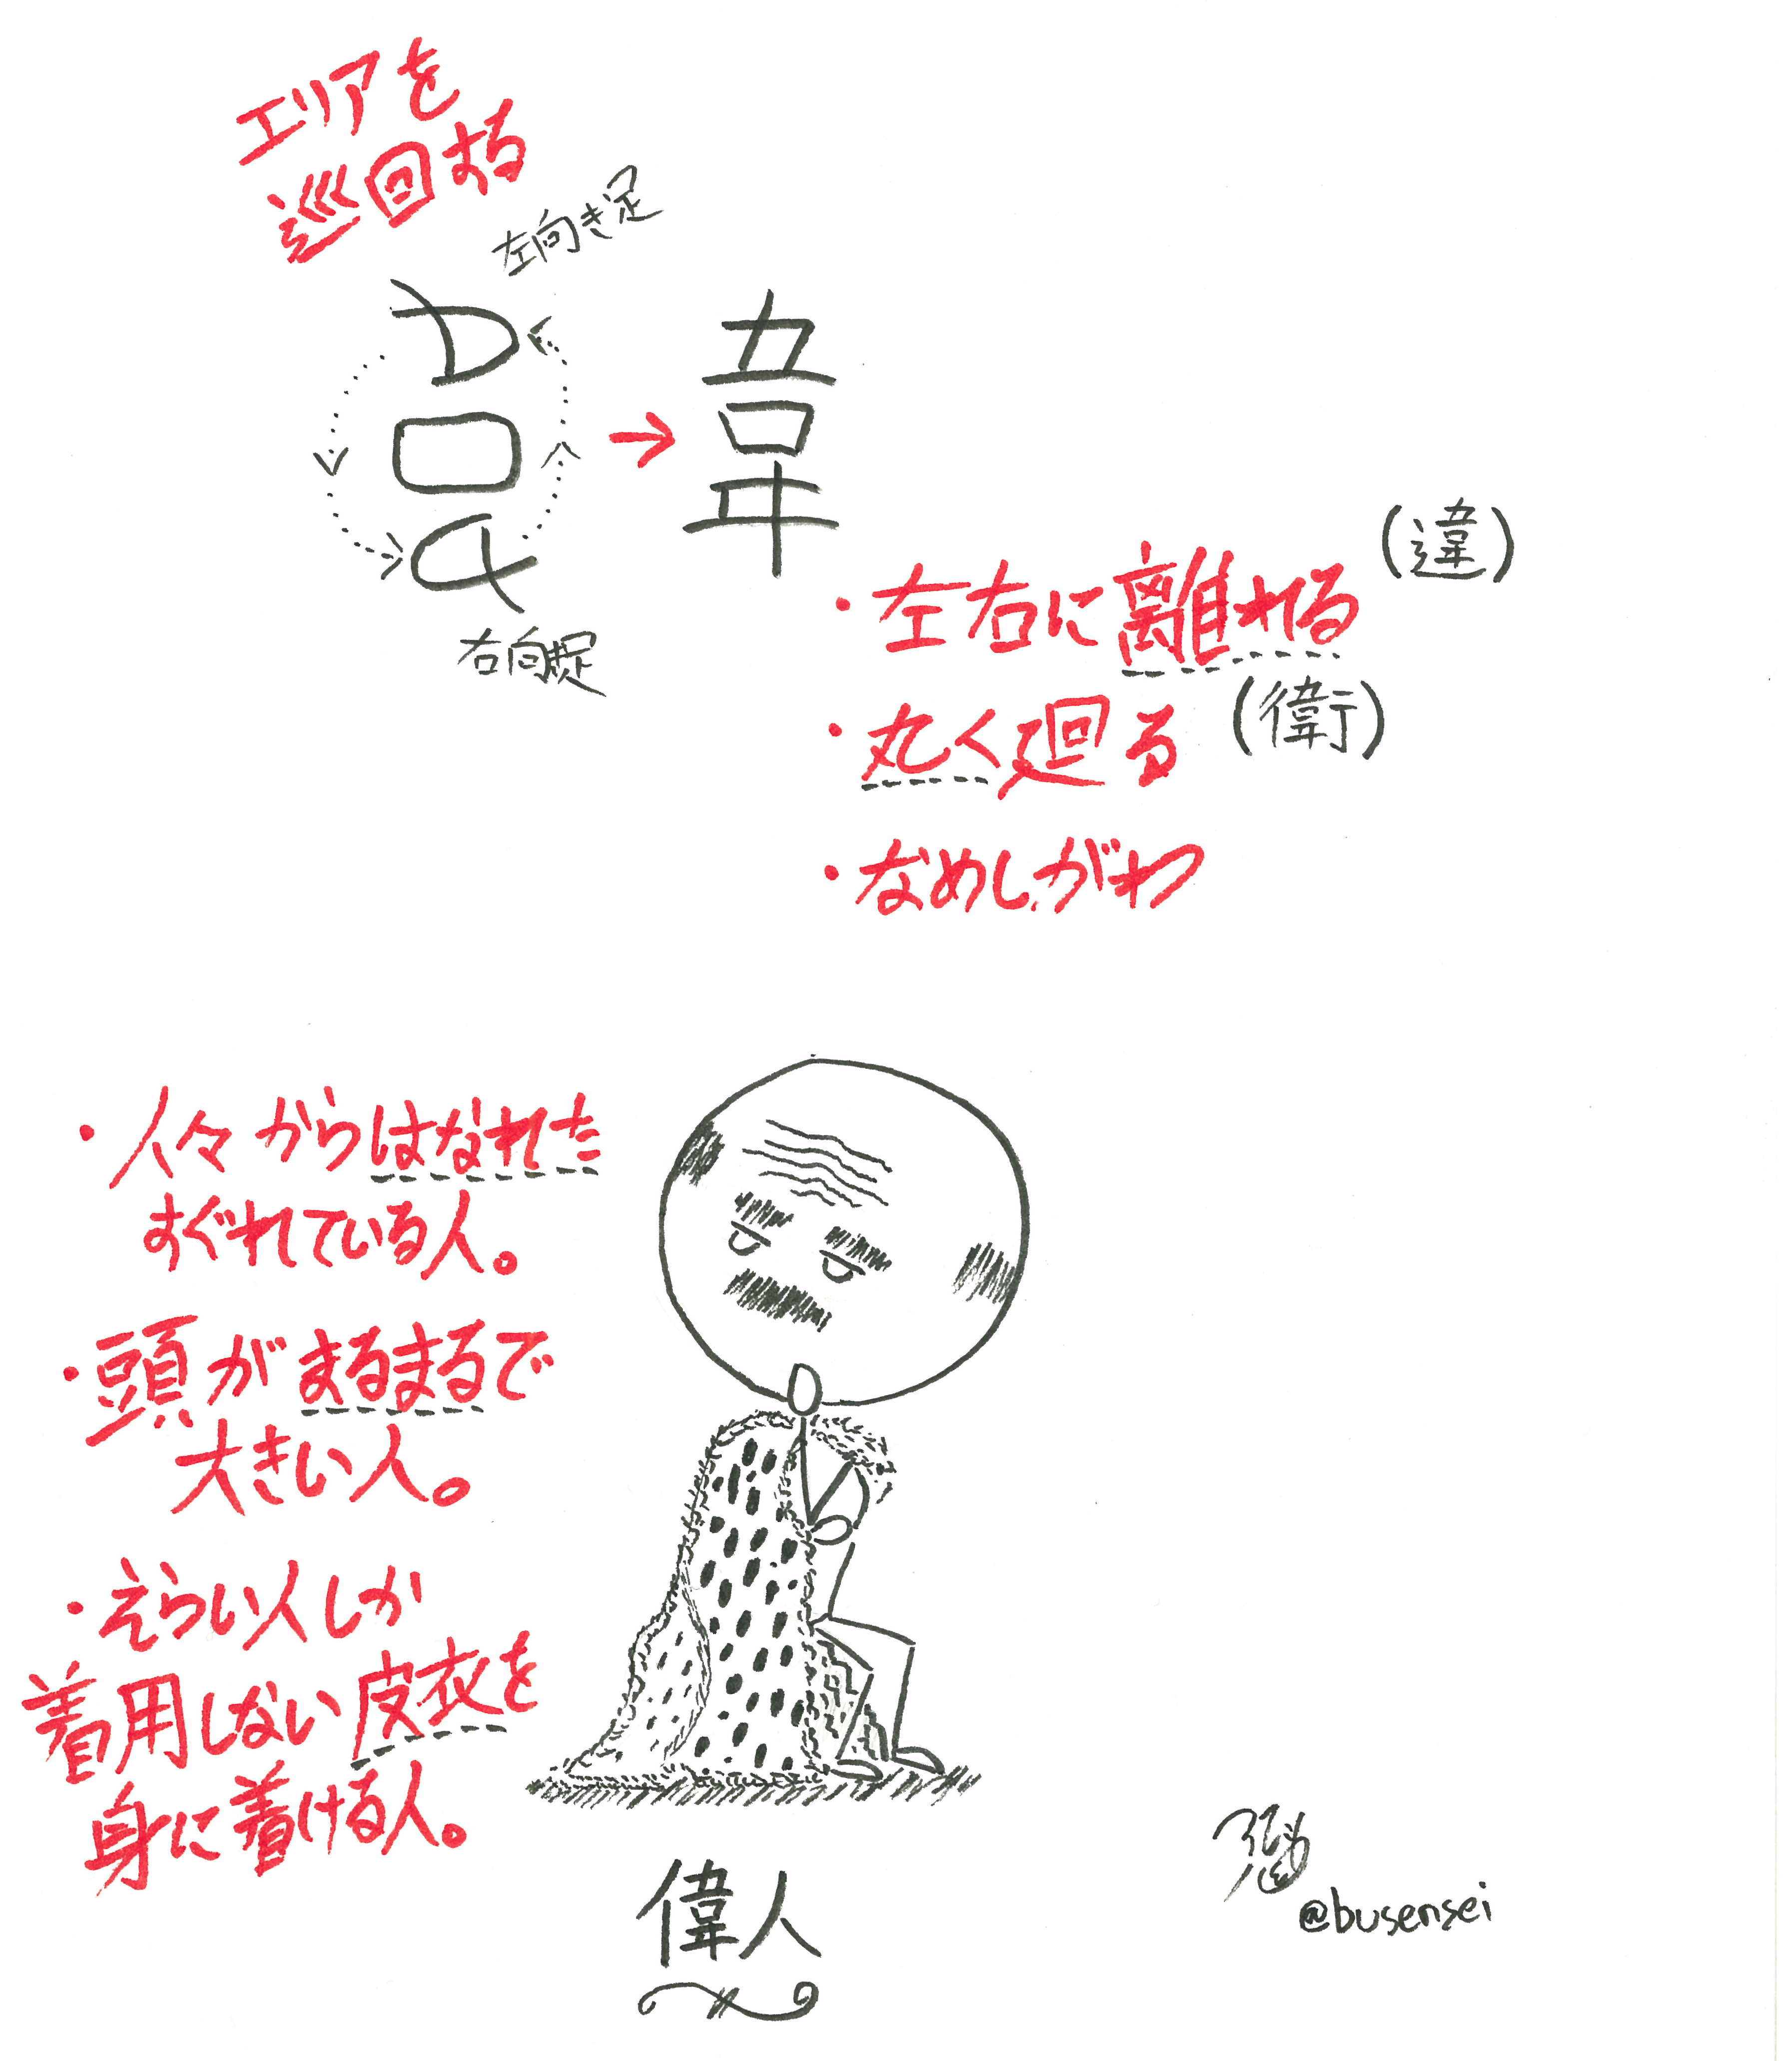 エリアを
巡回する
左向き足
→
韋
右向き足
・左右に離れる(違)
・丸く廻る(衛)
・なめしがわ
・人々からはなれた
すぐれている人。
・頭がまるまるで
大きい人。
・えらい人しか
着用しない皮衣を
身に着ける人。
偉人
@busensei